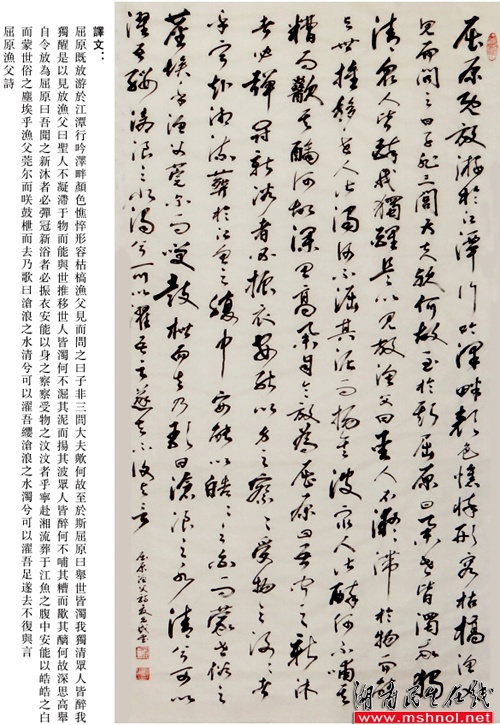 屈原既放游於江潭行吟澤畔顏色憔悴形容枯槁漁父
見而問之曰子非三閭大夫歟何故至於斯屈原曰舉世皆濁我獨
清眾人皆醉我獨醒是以見放漁父曰聖人不凝滯於物而能
與世推移世人皆濁何不淈其泥而揚其波眾人皆醉何不哺其
糟而歠其醨何故深思高舉自令放為屈原曰吾聞之新沐
者必彈冠新浴者必振衣安能以身之察察受物之汶汶者
乎寧赴湘流葬於江魚之腹中安能以皓皓之白而蒙世俗之
塵埃乎漁父莞尔而咲鼓枻而去乃歌曰滄浪之水清兮可以
濯吾纓滄浪之水濁兮可以濯吾足遂去不復與言
屈原漁父
譯文：
屈原既放游於江潭行吟澤畔顏色憔悴形容枯槁漁父見而問之曰子非三問大夫歟何故至於斯屈原曰舉世皆濁我獨清眾人皆醉我
獨醒是以見放漁父曰聖人不凝滯于物而能與世推移世人皆濁何不淈其泥而揚其波眾人皆醉何不哺其糟而歠其醨何故深思高舉
自令放為屈原曰吾聞之新沐者必彈冠新浴者必振衣安能以身之察察受物之汶汶者乎寧赴湘流葬于江魚之腹中安能以皓皓之白
而蒙世俗之塵埃乎漁父莞尔而咲鼓枻而去乃歌曰滄浪之水清兮可以濯吾纓滄浪之水濁兮可以濯吾足遂去不復與言
屈原漁父詩
湖南民生在线
www.mshnol.net